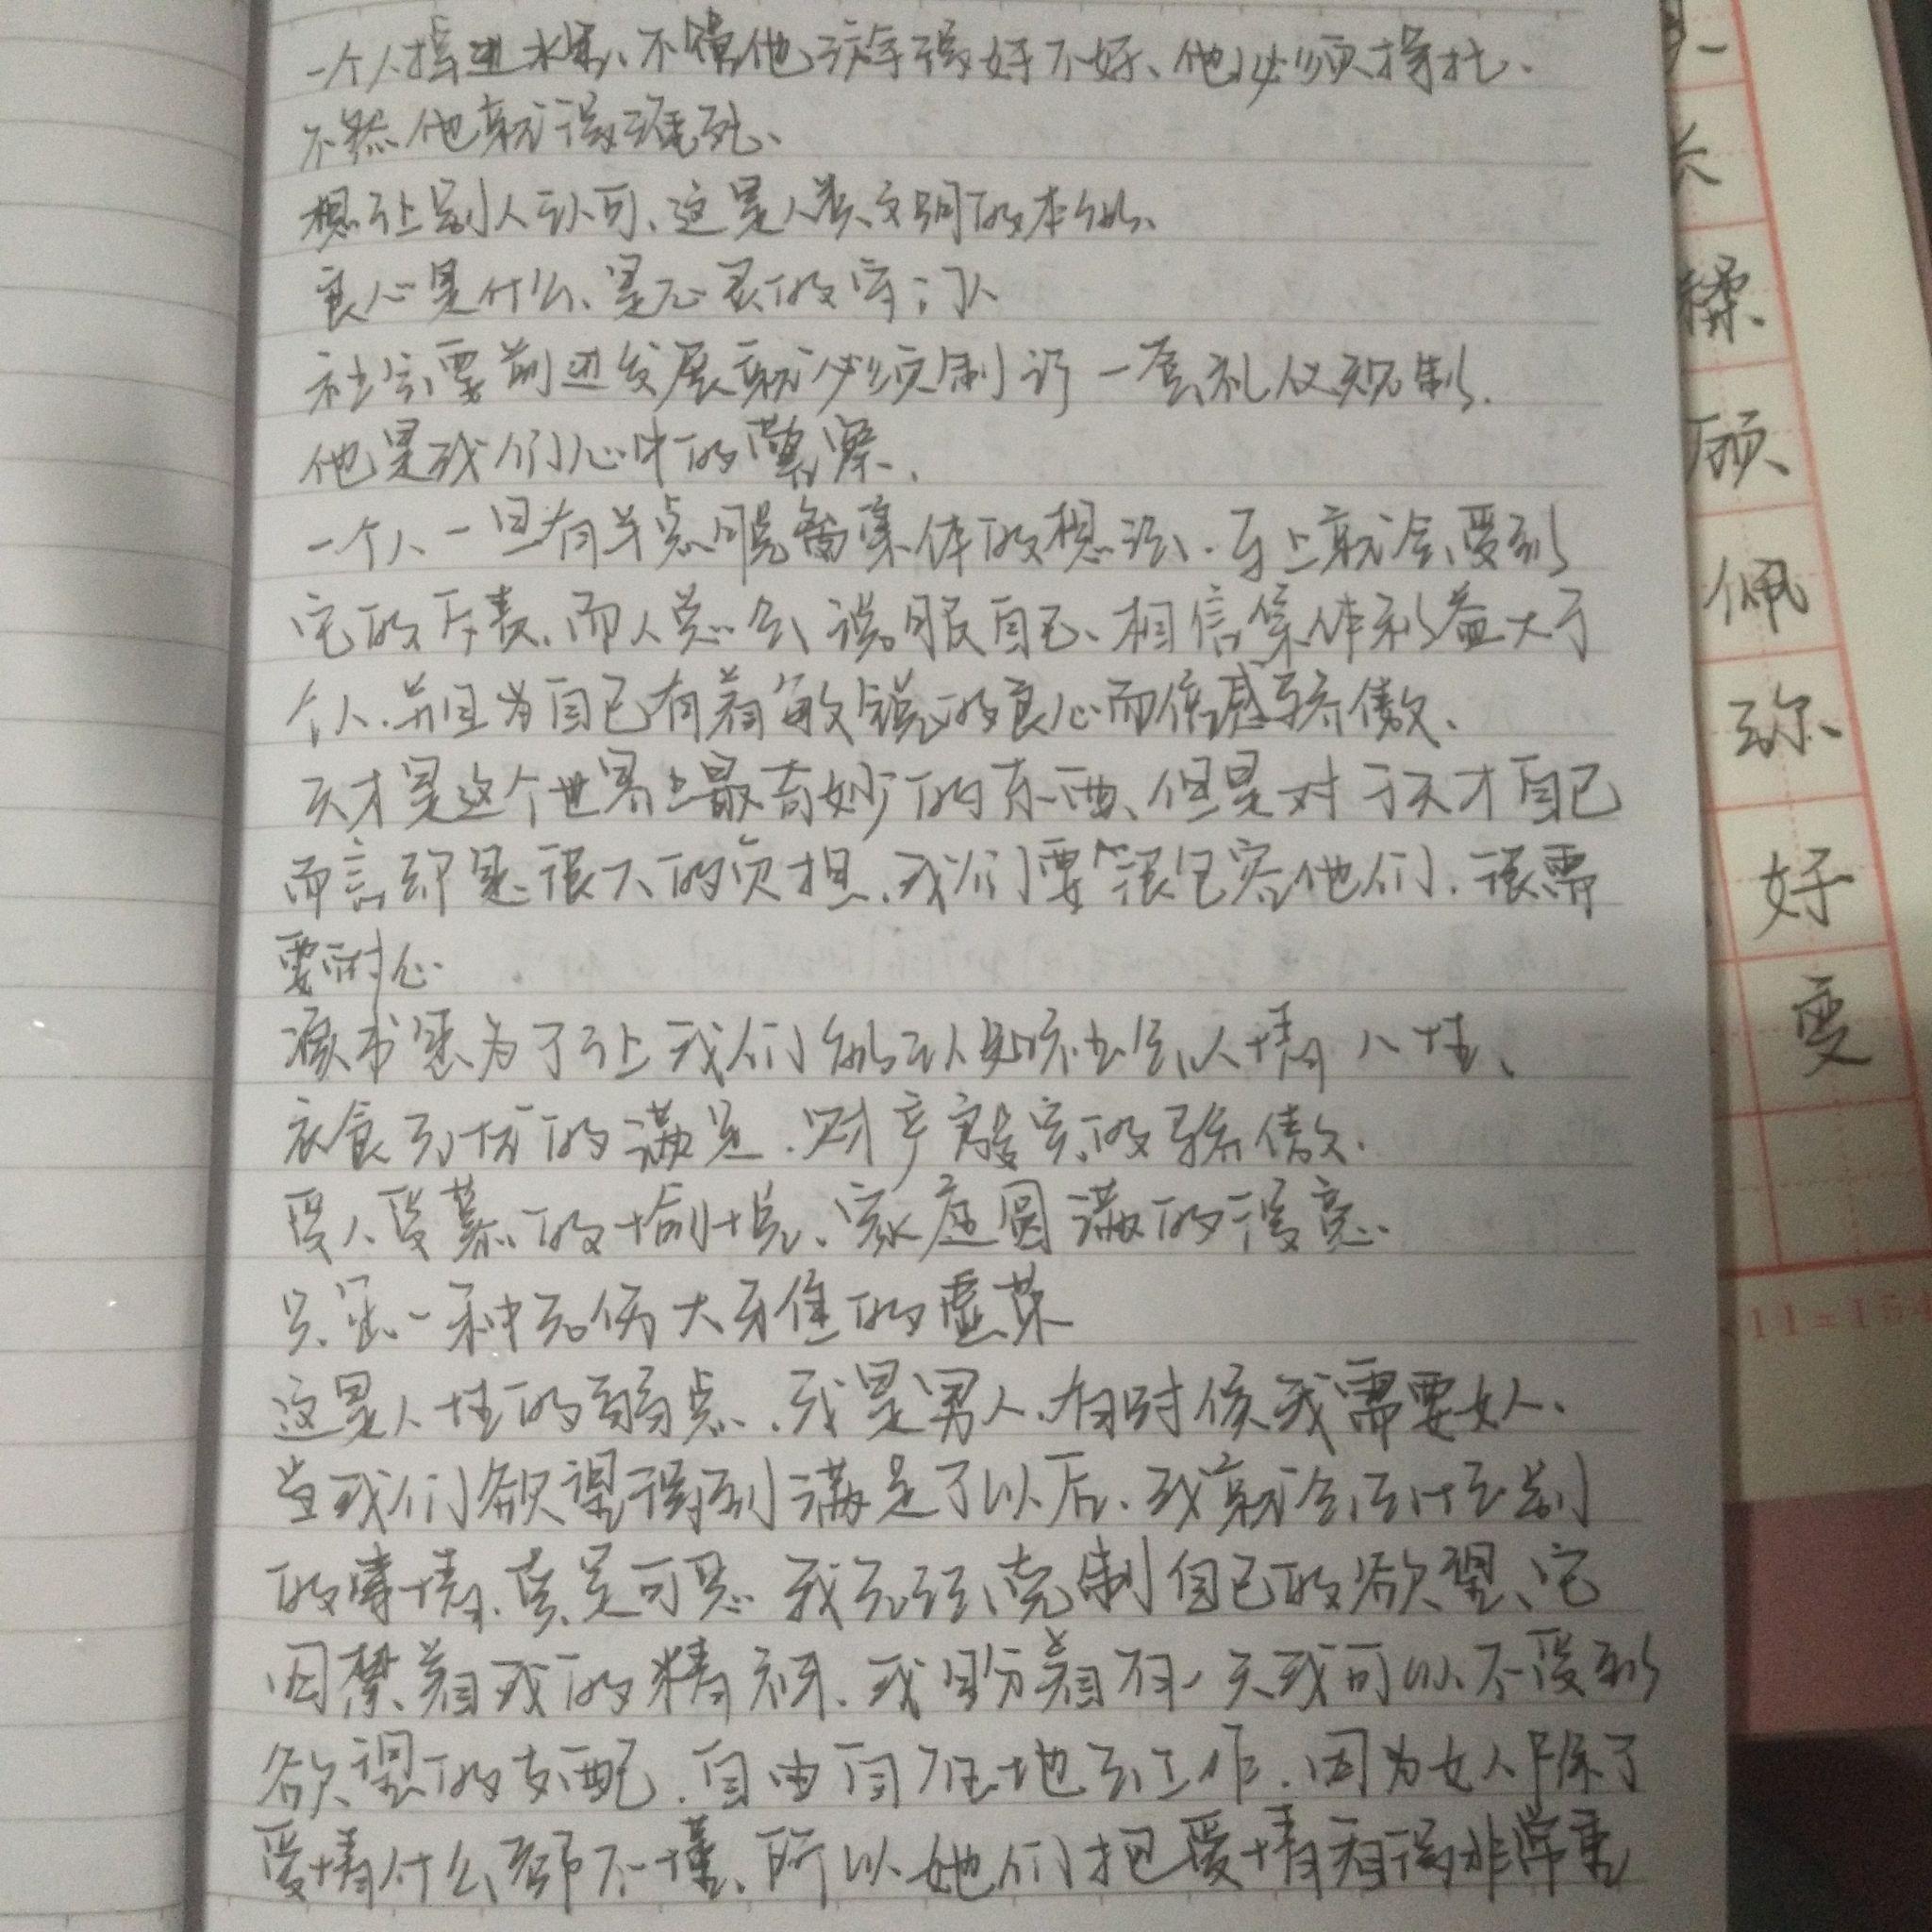 一个人掉进水里、不管他游得好不好、他必须挣扎、
不然他就得淹死、
想让别人认可、这是人类文明的本能、
良心是什么、是心灵的守门人
社会要前进发展就必须制订一套礼仪规制.
他是我们心中的警察.
一个人一旦有半点脱离集体的想法、马上就会受到
它的斥责、而人总会说服自己、相信集体利益大于
个人、并且为自己有着敏锐的良心而倍感骄傲、
天才是这个世界上最奇妙的东西、但是对于天才自己
而言却是很大的负担、我们要很包容他们、很需
要耐心
读书是为了让我们能认知社会人情人性、
衣食无忧的满足、财产殷实的骄傲.
受人爱慕的愉悦、家庭圆满的得意
只是一种无伤大雅的虚荣
这是人性的弱点、我是男人、有时候我需要女人、
当我们欲望得到满足了以后、我就会去忙别
的事情、真是可恶 我无法克制自己的欲望、它
囚禁着我的精神、我盼着有一天我可以不受到
欲望的支配、自由自在地去工作、因为女人除了
爱情什么都不懂、所以她们把爱情看得非常重
长
糅
顾
佩
弥
好
变
11=15